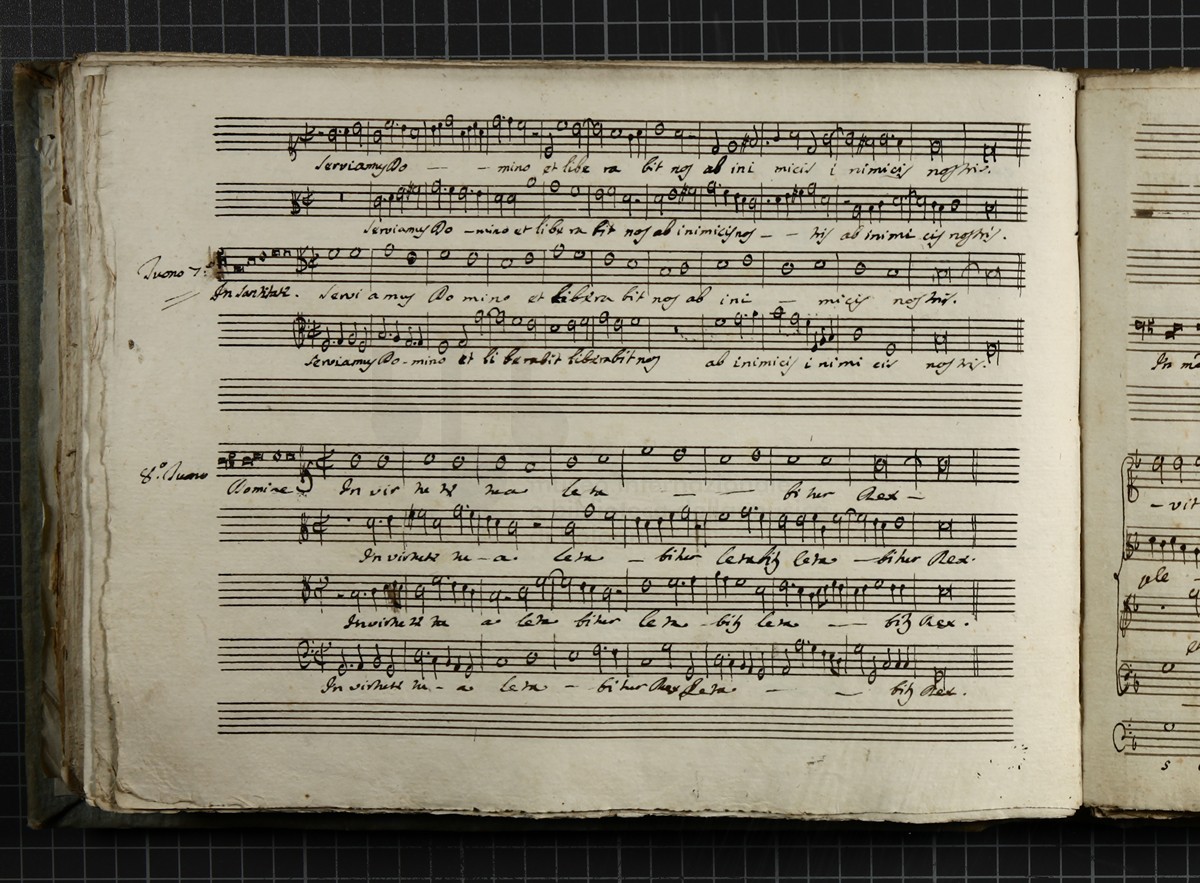 Serviamus Do - - mino et libe ra bit nos ab ini micis i nimicis nostris.
Serviamus Do - mino et libe ra bit nos ab inimicis nos - - tris ab inimi cis nostris.
Tuono 7:
In Sanctitate. Servi amus Do mino et libera bit nos ab ini - micis nostris.
Serviamus Do - mino et li berabit liberabit nos ab inimicis i nimi cis nostris.
8.º Tuono
Domine In vir tu te tua leta - - bitur Rex -
In virtute tu - a leta - bitur letabit leta - bitur Rex.
In virtute tu a leta bitur leta - bit leta - bit Rex.
In virtute tu - a leta - bitur Rex leta - - bit Rex.
In
- vit
ple
s